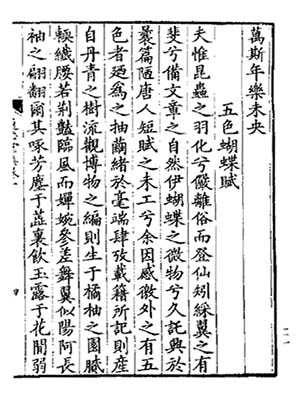 萬斯年樂未央
五色蝴蝶賦
夫惟昆蟲之羽化兮儼離俗而登仙矧綵翼之有
斐兮備文章之自然伊蝴蝶之微物兮久託興於
曩篇陋唐人短賦之未工兮余因感徼外之有五
色者迺為之抽繭緒於毫端肆攷載籍所記則産
自丹青之樹流觀博物之編則生于橘柚之園膩
輭纖腰若荆豔臨風而嬋婉參差舞翼似陽阿長
袖之翩翻爾其啄芳塵于蕋裏飲玉露于花間弱
四